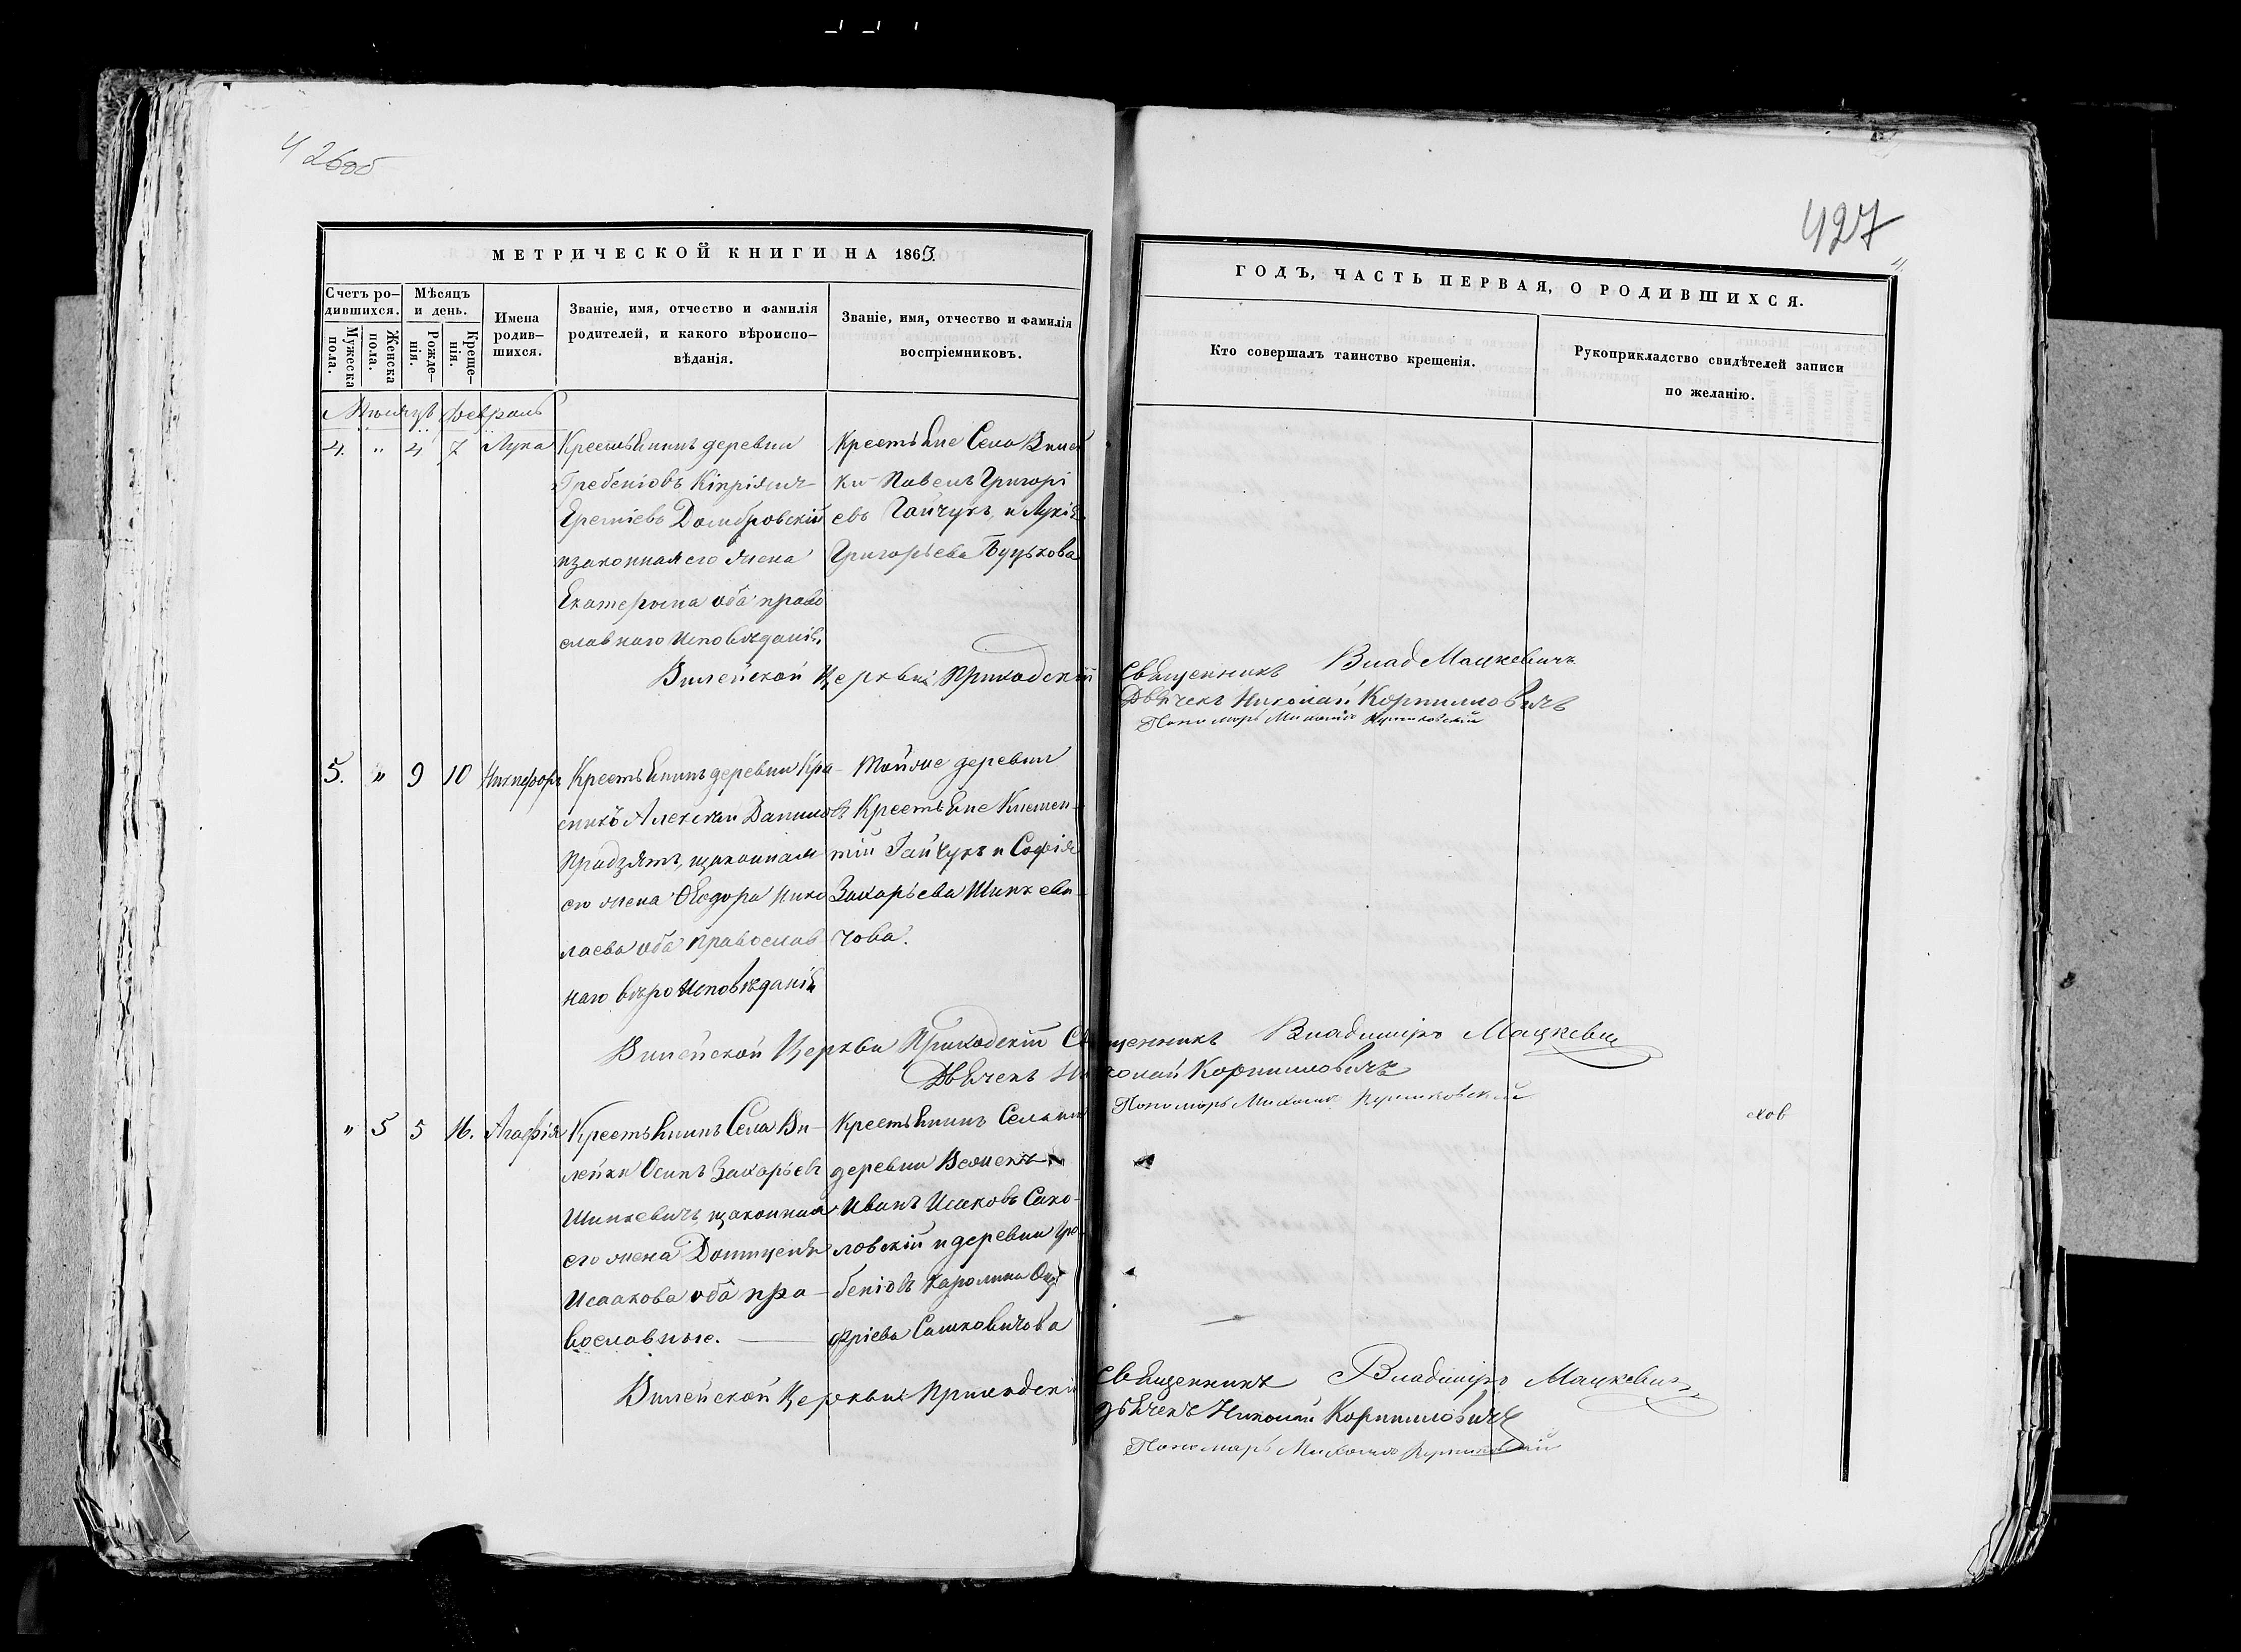 426об
427
МЕТРИЧЕСКОЙ КНИГИ НА 1863.
ГОДЪ, ЧАСТЬ ПЕРВАЯ, О РОДИВШИХСЯ.
Счетъ ро-
дившихся.
Мужеска
пола.
Женска
пола.
Мѣсяцъ
и день.
Рожде-
нія.
Креще-
нія.
Имена
родив-
шихся.
Званіе, имя, отчество и фамилія
родителей, и какого вѣроиспо-
вѣданія.
Званіе, имя, отчество и фамилія
воспріемниковъ.
Кто совершалъ таинство крещенія.
Рукоприкладство свидѣтелей записи
по желанію.
Мѣсяцъ Февраль
4. " 4 7 Лука
Крестьянинъ деревни
Гребеніовъ Кипріянъ
Еремѣевъ Домбровскій
и законная его жена
Екатерына оба право
славнаго Исповѣданія.
Крестьяне Села Вилей
ки Павелъ Григорі
евъ Гайчукъ, и Лукія
Григорьева Буцькова
Вилейской Церкви Приходскій Священникъ Влад Мацкевичъ
Дьячекъ Николай Корнилловичъ
Пономарь Михаилъ
5. " 9 10 Никифоръ
Крестьянинъ деревни Кра-
сникъ Алексѣй Даниловъ
Прадзятъ, и законная
его жена Ѳеодора Нико
лаева оба православ
наго вѣроИсповѣданія
Тойже деревни
Крестьяне Климен-
тій Гайчукъ и Софія
Захарьева Шинкеви-
чова.
Вилейской Церкви Приходскій Священникъ Владиміръ Мацкевич
Дьячекъ Николай Корнилловичъ
Пономарь Михаилъ
" 5 5 16. Агафія
Крестьянинъ Села Ви-
лейки Осипъ Захарьевъ
Шинкевичъ, и законная
его жена Домицеля
Исаакова оба пра-
вославные.
Крестьянинъ
деревни
Иванъ Исаковъ Сако-
ловскій и деревни Гре
беніовъ Каролина Ону
фріева Сашковичова
сков
Вилейской Церкви Приходскій Священникъ Владиміръ Мацкевичъ
Дьячекъ Николай Корнилловичъ
Пономарь Михаилъ